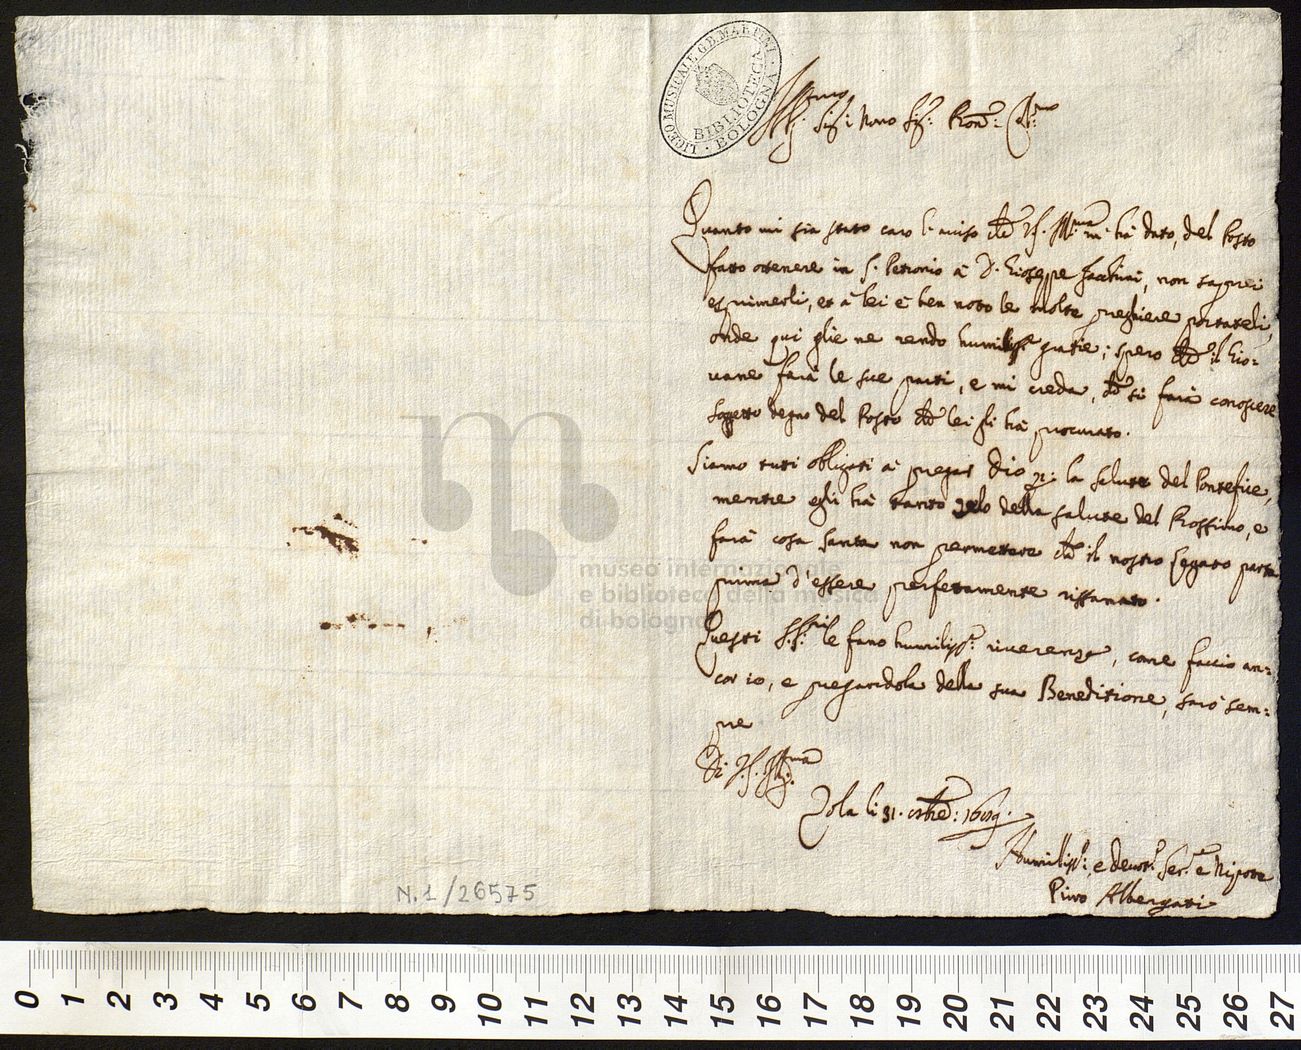 LICEO MUSICALE G.B. MARTINI
BIBLIOTECA
BOLOGNA
Ill.mo
Sig.r: Sig.r Pron.e: Col.mo
Quanto mi sia stato caro l'auiso che V.S. Ill.ma mi hà dato, del Posto
fatto ottenere in S. Petronio à D. Gioseppe Jacchini, non saprei
esprimerli, et à lei è ben noto le molte preghiere portateli,
onde qui glie ne rendo humiliss.e gratie; spero che il Gio-
uane farà le sue parti, e mi creda, che si farà conoscere
sogetto degno del Posto che lei gli hà procurato.
Siamo tutti obligati à pregar Dio p: la salute del Pontefice,
mentre egli hà tanto zelo della salute del Prossimo, e
farà cosa santa non permettere che il nostro Legato parta
prima d'essere perfetamente rissanato.
Questi SS.ri le fano humiliss.e riuerenze, come faccio an-
cor io, e pregandola della sua Beneditione, sarò sem-
pre
Di V.S. Ill.ma
Zola li 31. ottobre: 1689.
Humiliss.o, e deuot.o Ser.e e Nipote
Pirro Albergati
N.1/26575
museo internazionale
e biblioteca della musica
di bologna
0 1 2 3 4 5 6 7 8 9 10 11 12 13 14 15 16 17 18 19 20 21 22 23 24 25 26 27